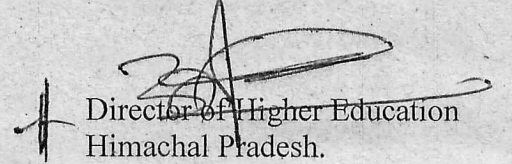 Director of Higher Education
Himachal Pradesh.